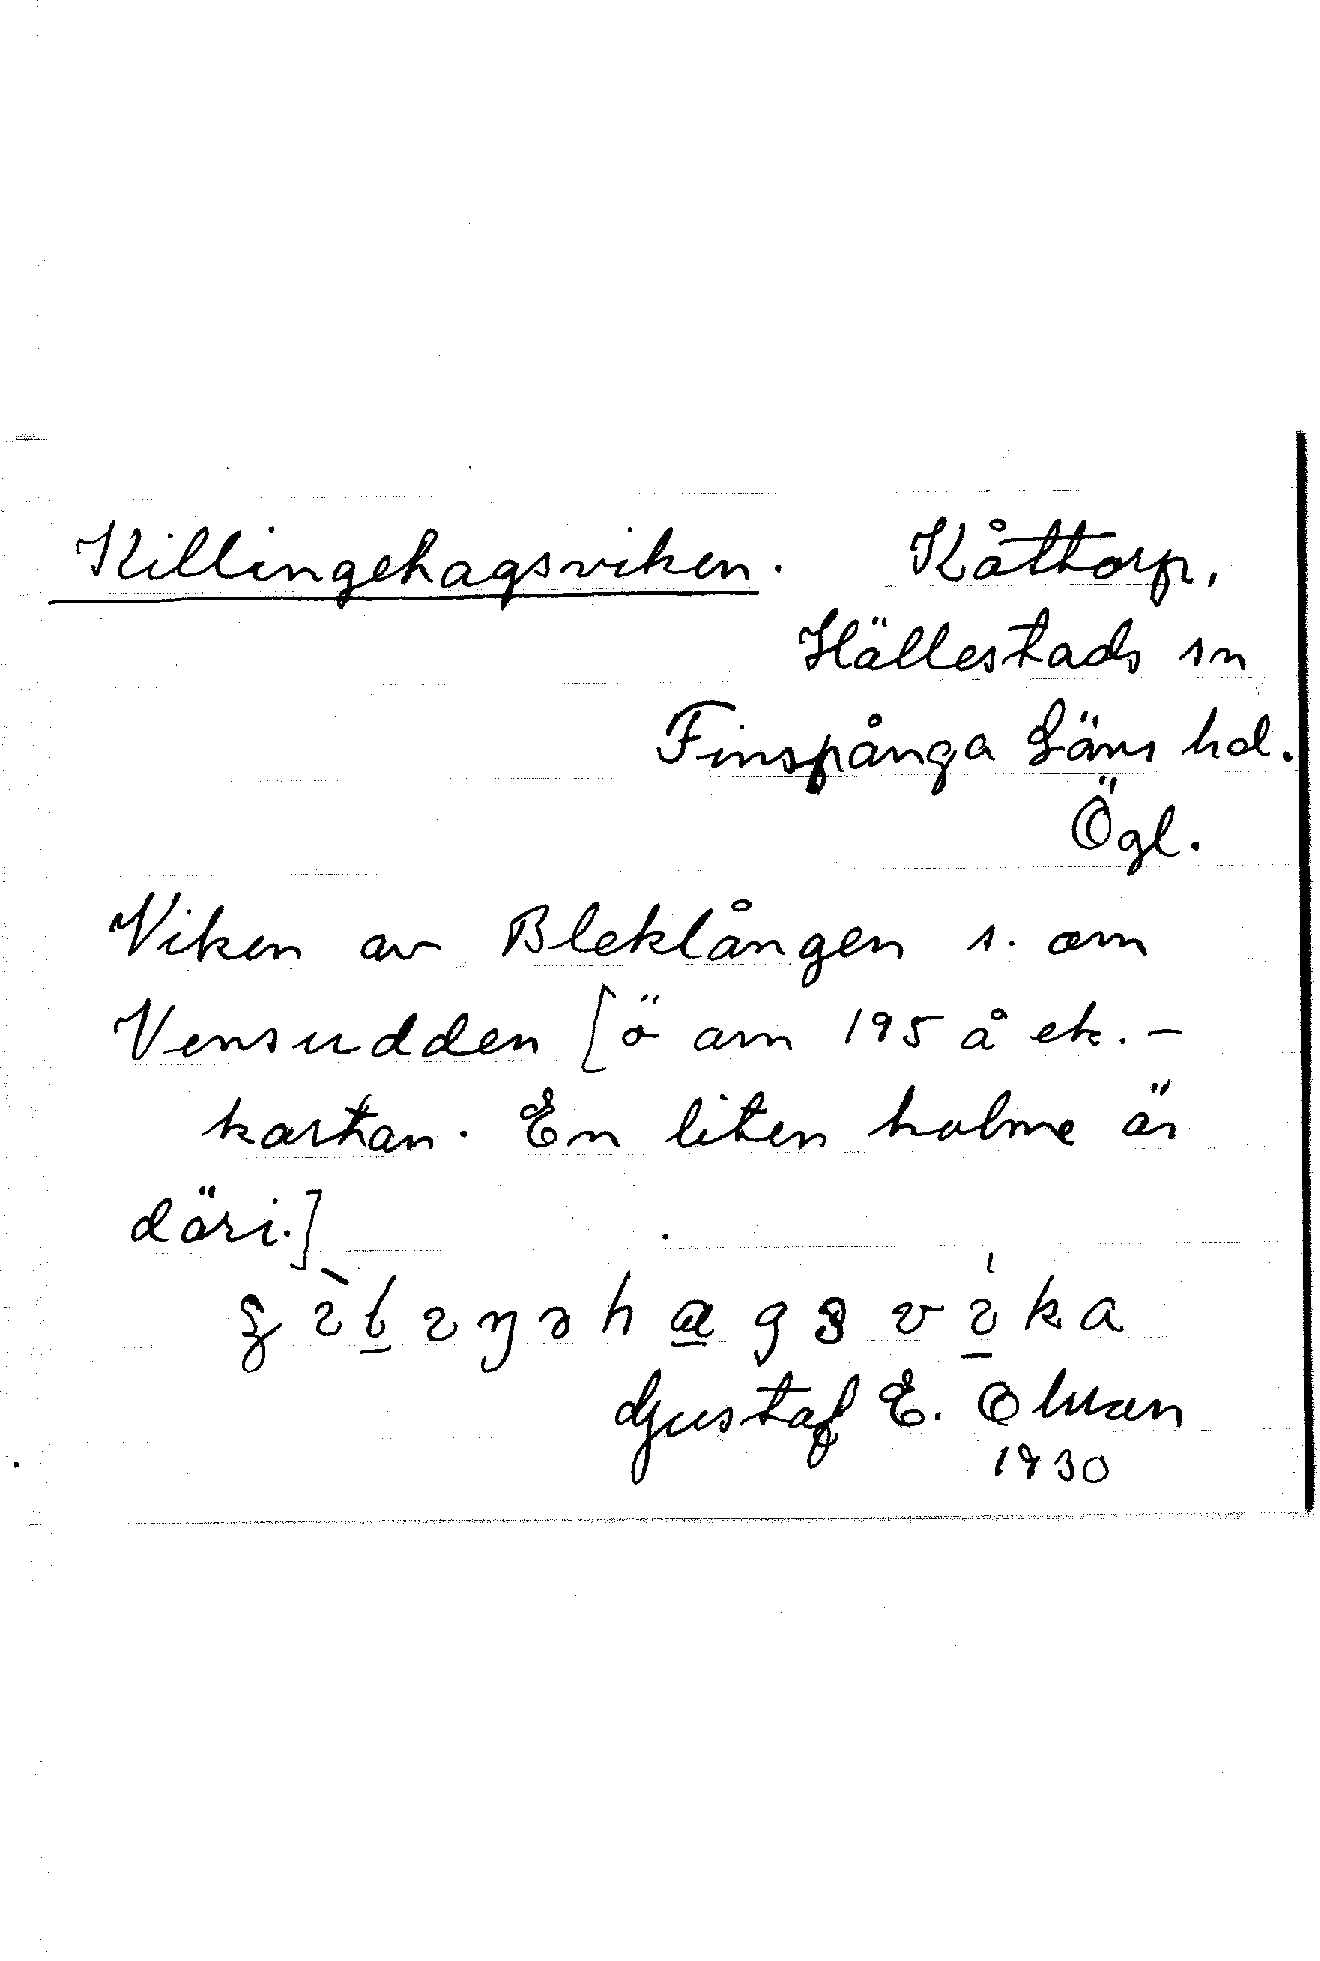 Killingehagsviken. Kåttorp,
Hällestads sn
Finspånga Läns hd.
Ögl.
Viken av Bleklången s. om
Vensudden [ö om 195 å ek.-
kartan. En liten holme är
däri.]
Gustaf E. Olsson
1930